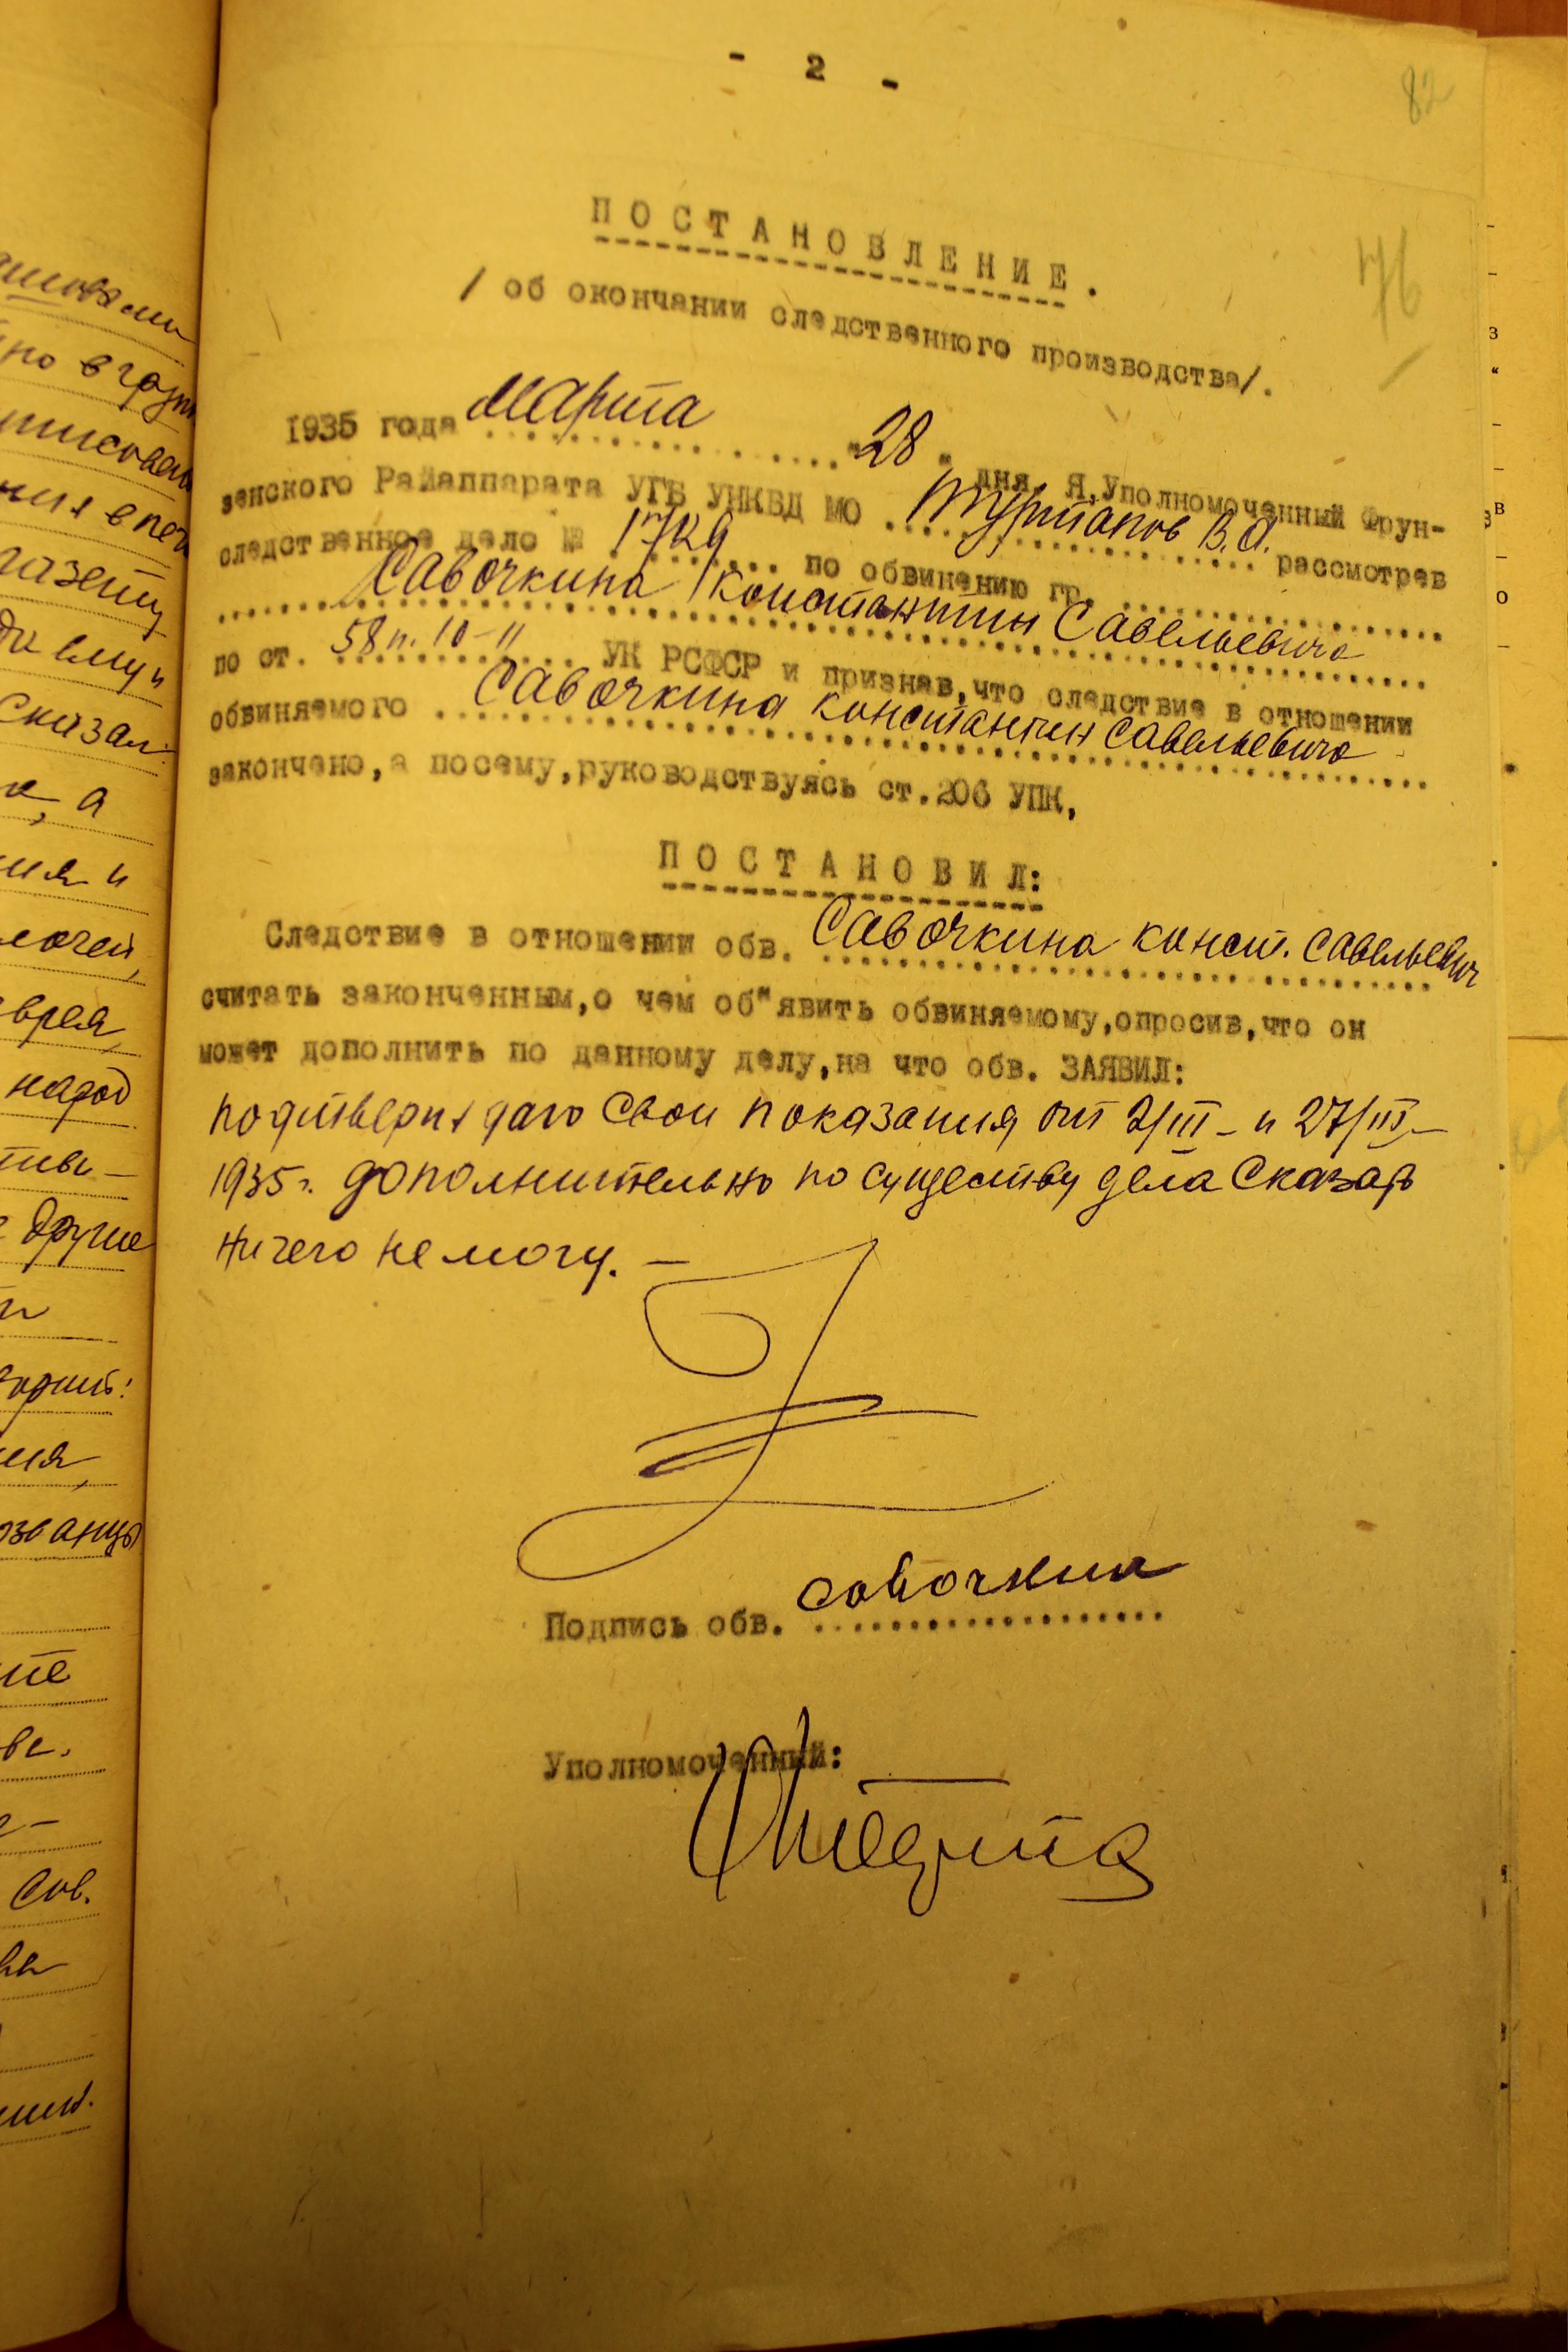 - 2 -
82
76
ПОСТАНОВЛЕНИЕ.
/ об окончании следственного производства/.
1935 года марта "28" дня, Я, Уполномоченный Фрун-
зенского Райаппарата УГБ УНКВД МО В.А. рассмотрев
следственное дело № по обвинению гр.
Савочкина Константин Савельевича
по ст. 58 п. 10-11 УК РСФСР и признав, что следствие в отношении
обвиняемого Савочкина Константин Савельевича
закончено, а посему, руководствуясь ст. 206 УПК,
ПОСТАНОВИЛ:
Следствие в отношении обв. Савочкина Конст. Савельевич
считать законченным, о чем об"явить обвиняемому, опросив, что он
может дополнить по данному делу, на что обв. ЗАЯВИЛ:
подтверждаю свои показания от 2/III – и 27/III –
1935 г. дополнительно по существу дела сказать
ничего не могу. –
Подпись обв. Савочкин
Уполномоченный:
но в
газету
сказал
а
ия и
народ
другие
Сов.